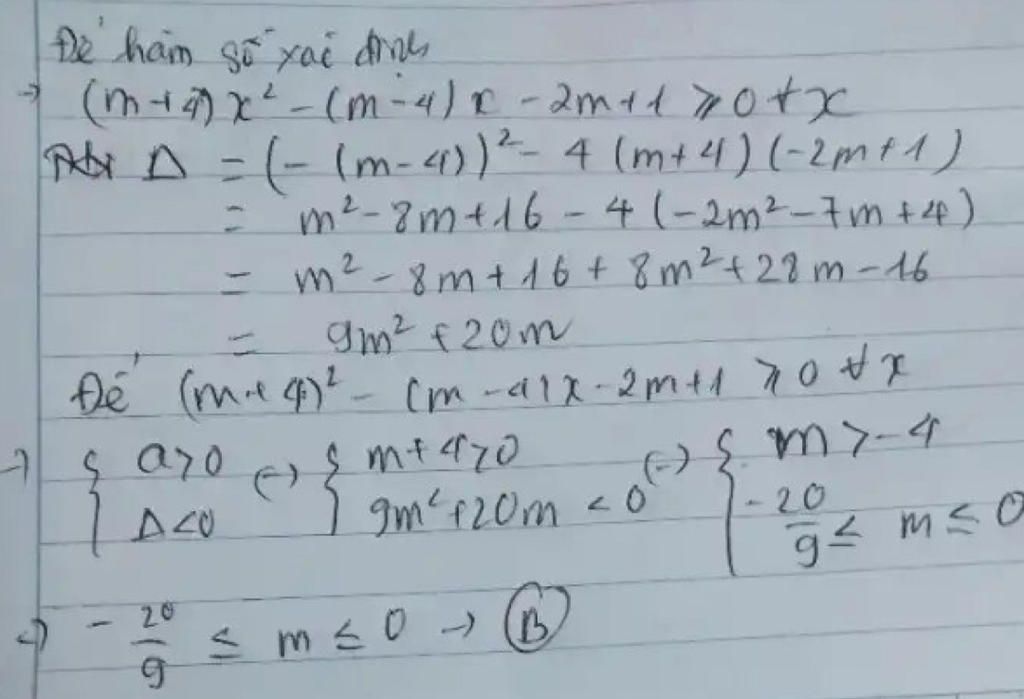 Để hàm số xác định
→ (m+4)x² - (m-4)x - 2m+1 ≥ 0 ∀x
Δ = (-(m-4))² - 4(m+4)(-2m+1)
= m² - 8m + 16 - 4(-2m² - 7m + 4)
= m² - 8m + 16 + 8m² + 28m - 16
= 9m² + 20m
Để (m+4)² - (m-4)x - 2m+1 ≥ 0 ∀x
→ { a>0 (-) { m+4>0 (-) { m > -4
Δ<0 9m²+20m < 0 -20/9 ≤ m ≤ 0
(-) -20/9 ≤ m ≤ 0 → B